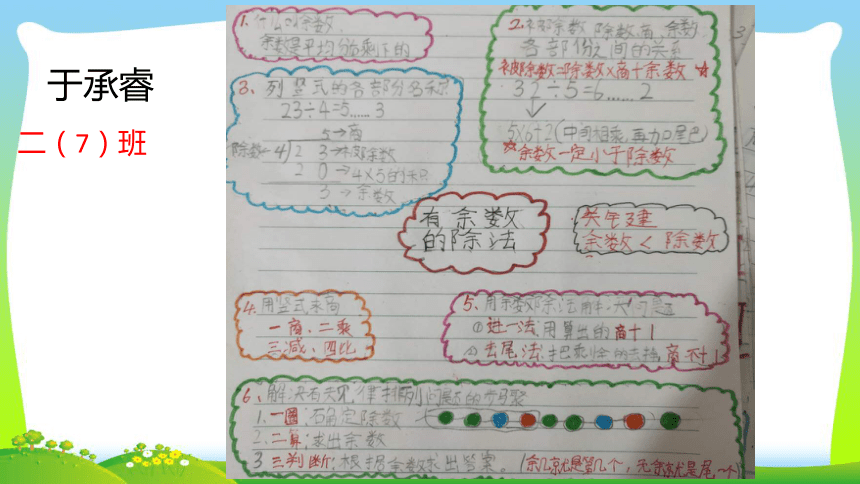 于承睿
二（7）班
1.什么叫余数
余数是平均分后剩下的
2.被除数 除数 商、余数
各部份之间的关系
被除数=除数×商+余数
32÷5=6……2
5×6+2(中间相乘,再加尾巴)
余数一定小于除数
3、列竖式的各部分名称
23÷4=5……3
5→商
除数←4 2 3→被除数
2 0→4×5的积
3→余数
有余数
的除法
关键
余数<除数
4.用竖式求商
一商.二乘
三减、四比
5、用余数除法解决问题
①进一法:用算出的商+1
②去尾法:把剩余的去掉,商不+1
6、解决有关规律排列问题的步骤
1.一圈:确定除数
2.二算:求出余数
3 三判断:根据余数求出答案。(余几就是第几个,无余就是尾一个)